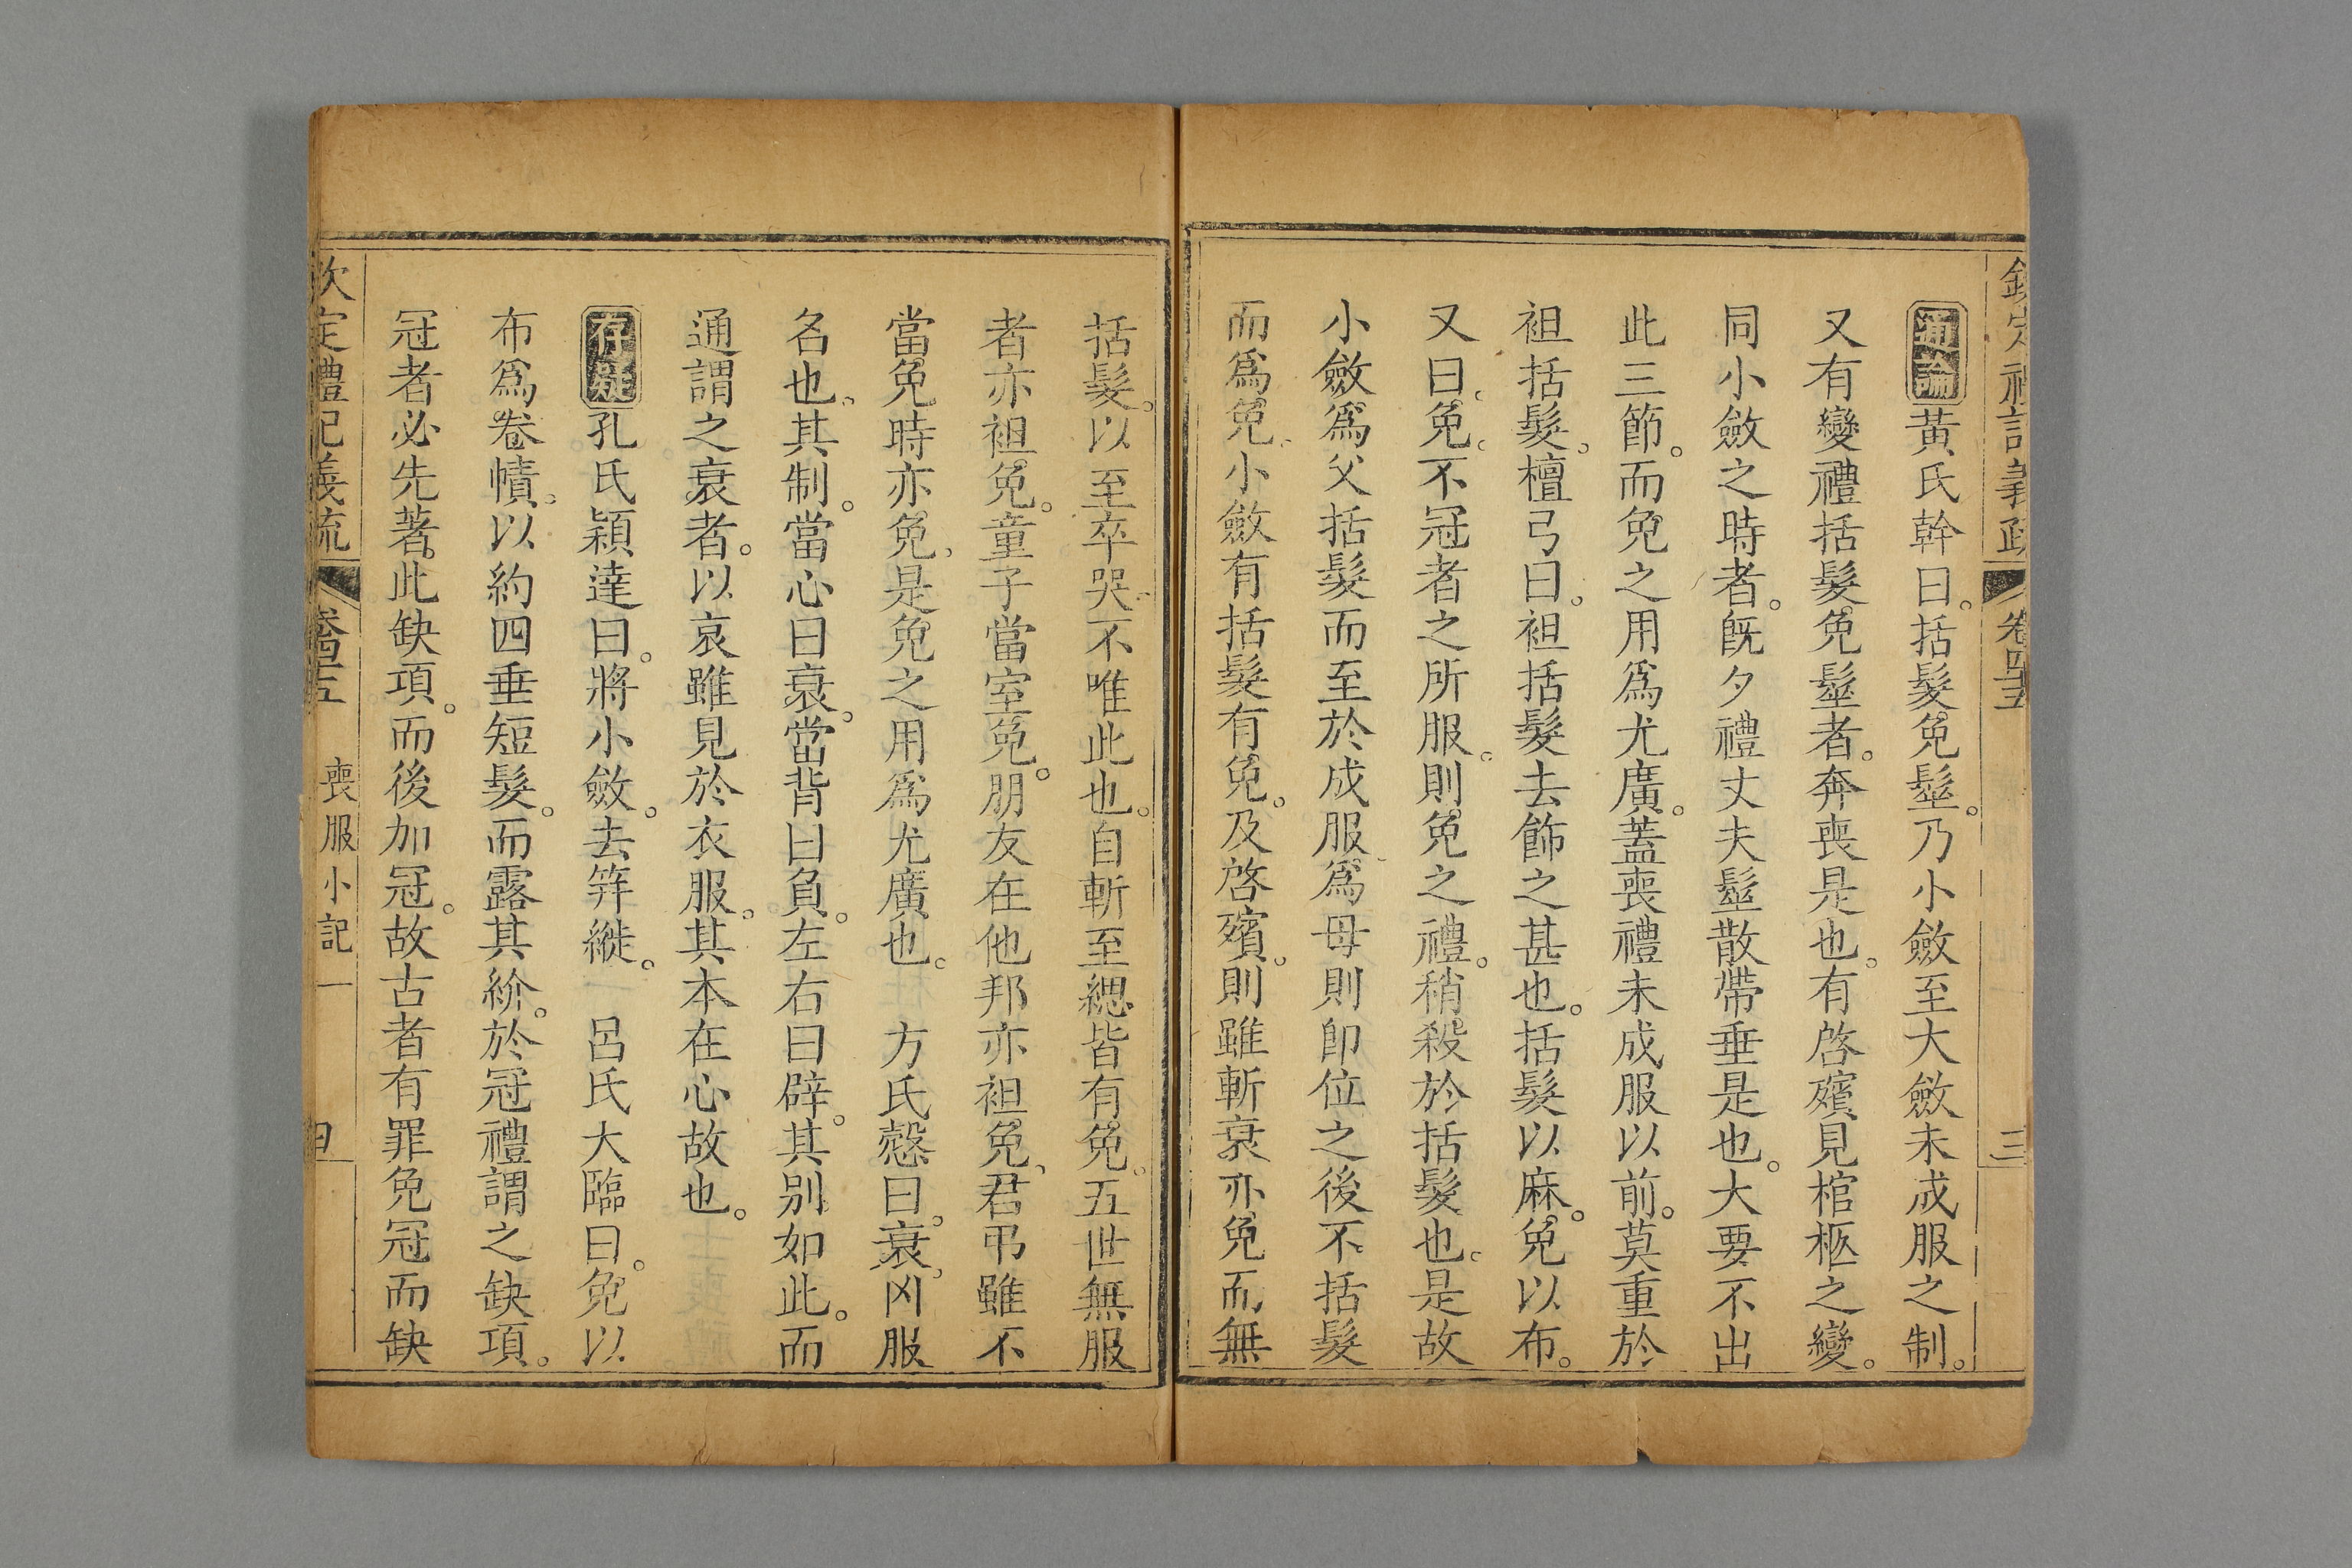 欽定禮記義疏 卷四十五 三
通論黃氏榦曰。括髮免髽。乃小斂至大斂未成服之制。
又有變禮括髮免髽者。奔喪是也。有啓殯見棺柩之變。
同小斂之時者。旣夕禮丈夫髽散帶垂是也。大要不出
此三節。而免之用爲尤廣。蓋喪禮未成服以前。莫重於
袒括髮。檀弓曰。袒括髮去飾之甚也。括髮以麻。免以布。
又曰。免。不冠者之所服。則免之禮。稍殺於括髮也。是故
小斂爲父括髮而至於成服。爲母則卽位之後不括髮
而爲免。小斂有括髮有免。及啓殯。則雖斬衰亦免而無
括髮。以至卒哭。不唯此也。自斬至緦皆有免。五世無服
者亦袒免。童子當室免。朋友在他邦亦袒免。君弔雖不
當免時亦免。是免之用爲尤廣也。 方氏慤曰。衰。凶服
名也。其制。當心曰衰。當背曰負。左右曰辟。其别如此。而
通謂之衰者。以哀雖見於衣服。其本在心故也。
存疑孔氏穎達曰。將小斂。去笄縰。 呂氏大臨曰。免以
布爲卷幘。以約四垂短髮。而露其紒。於冠禮謂之缺項。
冠者必先著此缺項。而後加冠。故古者有罪免冠而缺
欽定禮記義疏 卷四十五 喪服小記一